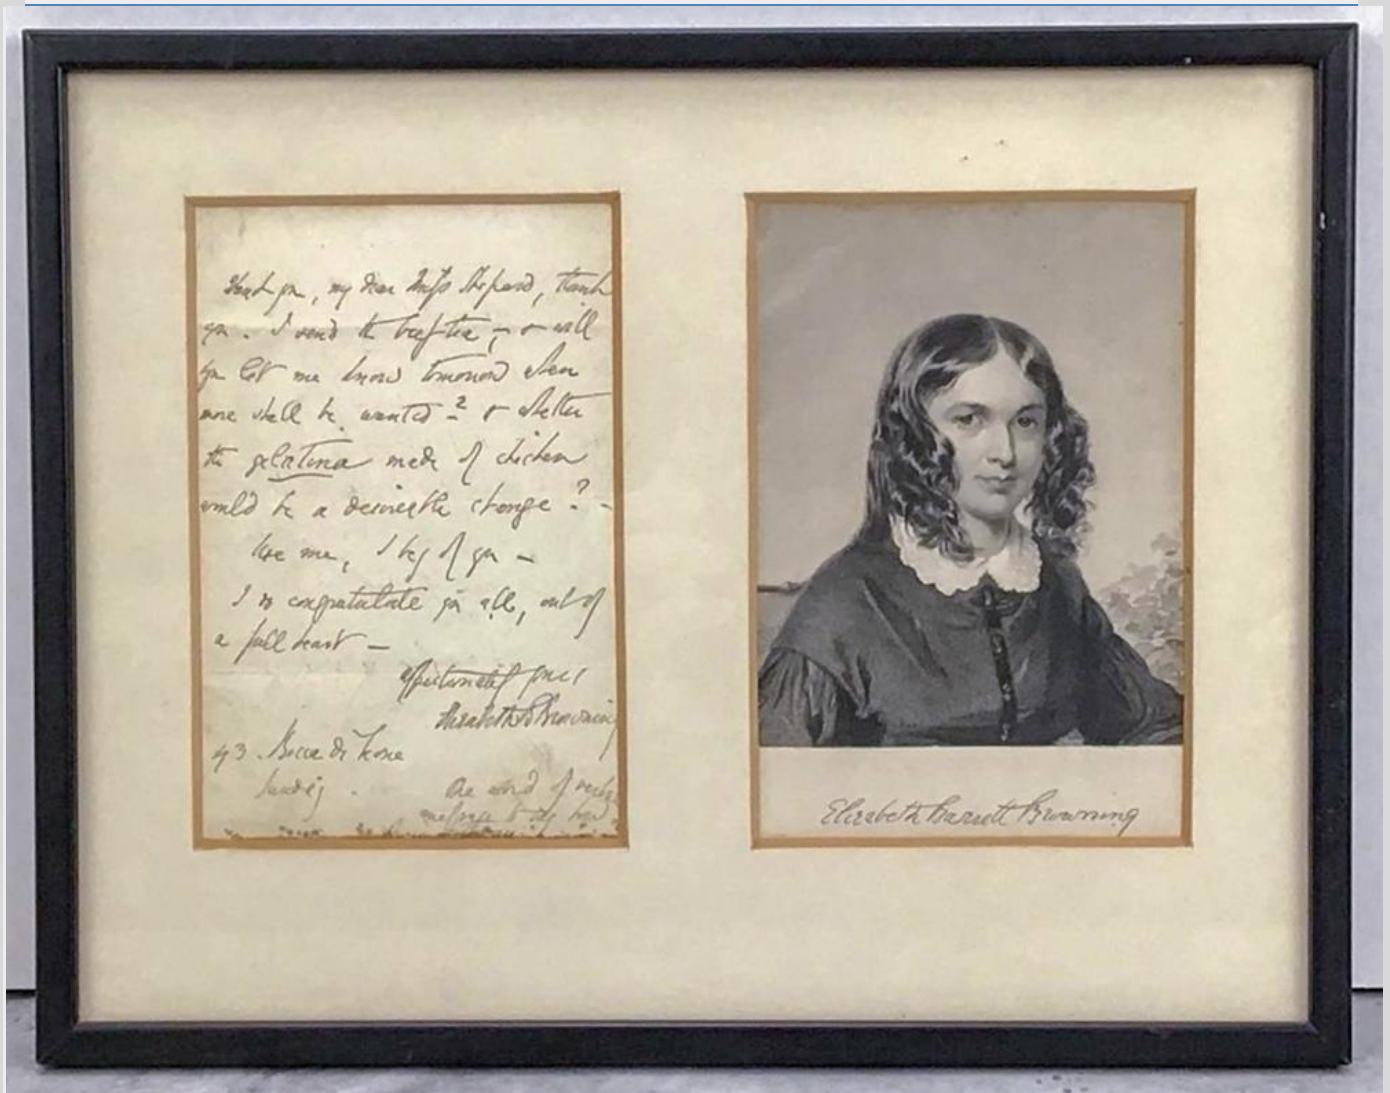 Thank you, my dear Miss Shepard, thank
you. I send the beef tea, – & will
you let me know tomorrow when
more shall be wanted? & whether
the gelatina made of chicken
would be a desireable change? –
Use me, I beg of you –
I do congratulate you all, out of
a full heart –
Affectionately yours
Elizabeth B Browning
43 Bocca di Leone
One word of
message to my
Elizabeth Barrett Browning